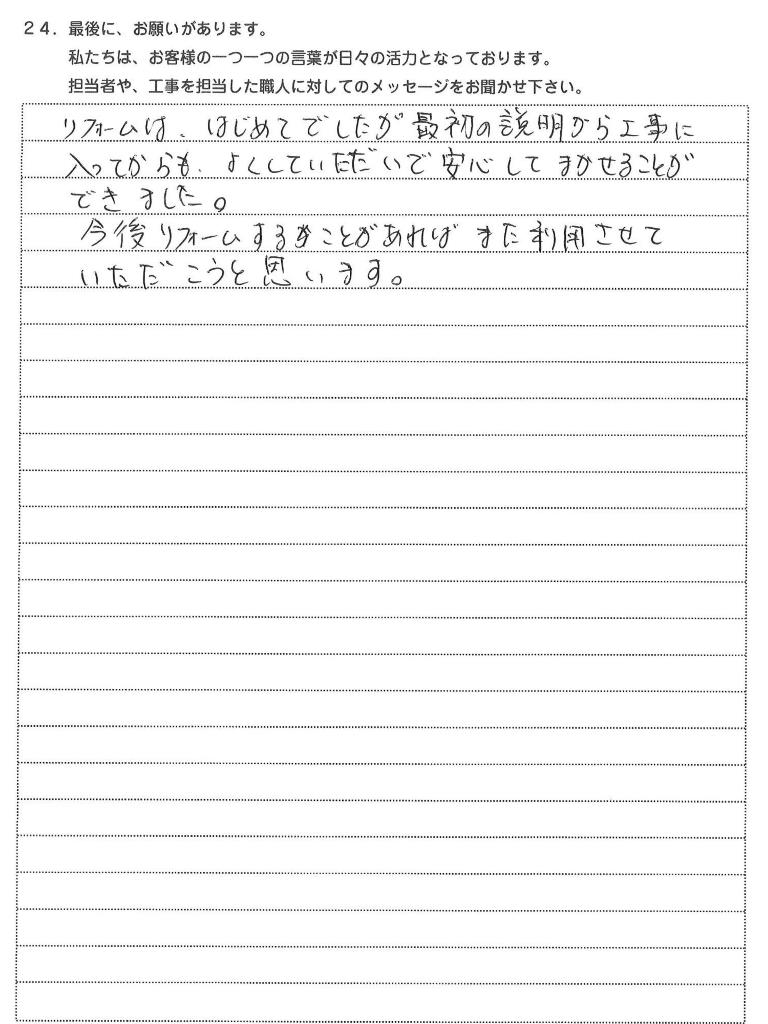 ２４．最後に、お願いがあります。
私たちは、お客様の一つ一つの言葉が日々の活力となっております。
担当者や、工事を担当した職人に対してのメッセージをお聞かせ下さい。
リフォームは、はじめてでしたが最初の説明から工事に
入ってからも、よくしていただいで安心して まかせることが
できました。
今後リフォームすることがあれば また利用させて
いただこうと思います。